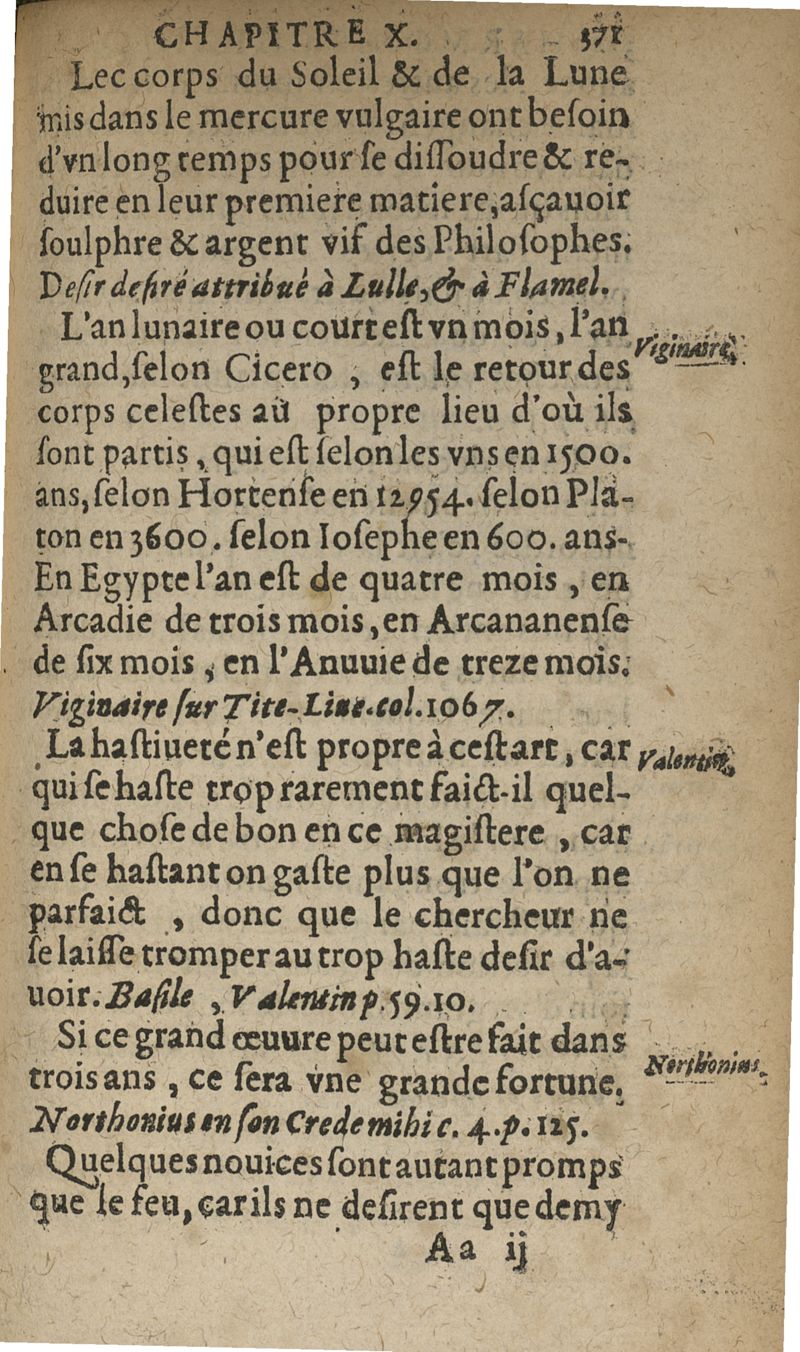 CHAPITRE X. 371
Lec corps du Soleil & de la Lune
mis dans le mercure vulgaire ont beſoin
d'vn long temps pour ſe diſſoudre & re-
duire en leur premiere matiere, aſçauoir
ſoulphre & argent vif des Philoſophes.
Deſir deſiré attribué à Lulle, & à Flamel.
L'an lunaire ou court eſt vn mois, l'an
Viginaire,
grand, ſelon Cicero , eſt le retour des
corps celeſtes au propre lieu d'où ils
ſont partis, qui eſt ſelon les vns en 1500.
ans, ſelon Hortenſe en 12954. ſelon Pla-
ton en 3600. ſelon Ioſephe en 600. ans.
En Egypte l'an eſt de quatre mois , en
Arcadie de trois mois, en Arcananenſe
de ſix mois , en l'Anuuie de treze mois.
Viginaire ſur Tite-Liue. col. 1067.
La haſtiueté n'eſt propre à ceſt art, car
Valentin,
qui ſe haſte trop rarement faict-il quel-
que choſe de bon en ce magiſtere , car
en ſe haſtant on gaſte plus que l'on ne
parfaict , donc que le chercheur ne
ſe laiſſe tromper au trop haſte deſir d'a-
uoir. Baſile , Valentin p. 59. 10.
Si ce grand œuure peut eſtre fait dans
Northonius,
trois ans , ce ſera vne grande fortune.
Northonius en ſon Crede mihi c. 4. p. 125.
Quelques nouices ſont autant promps
que le feu, car ils ne deſirent que demy
Aa ij